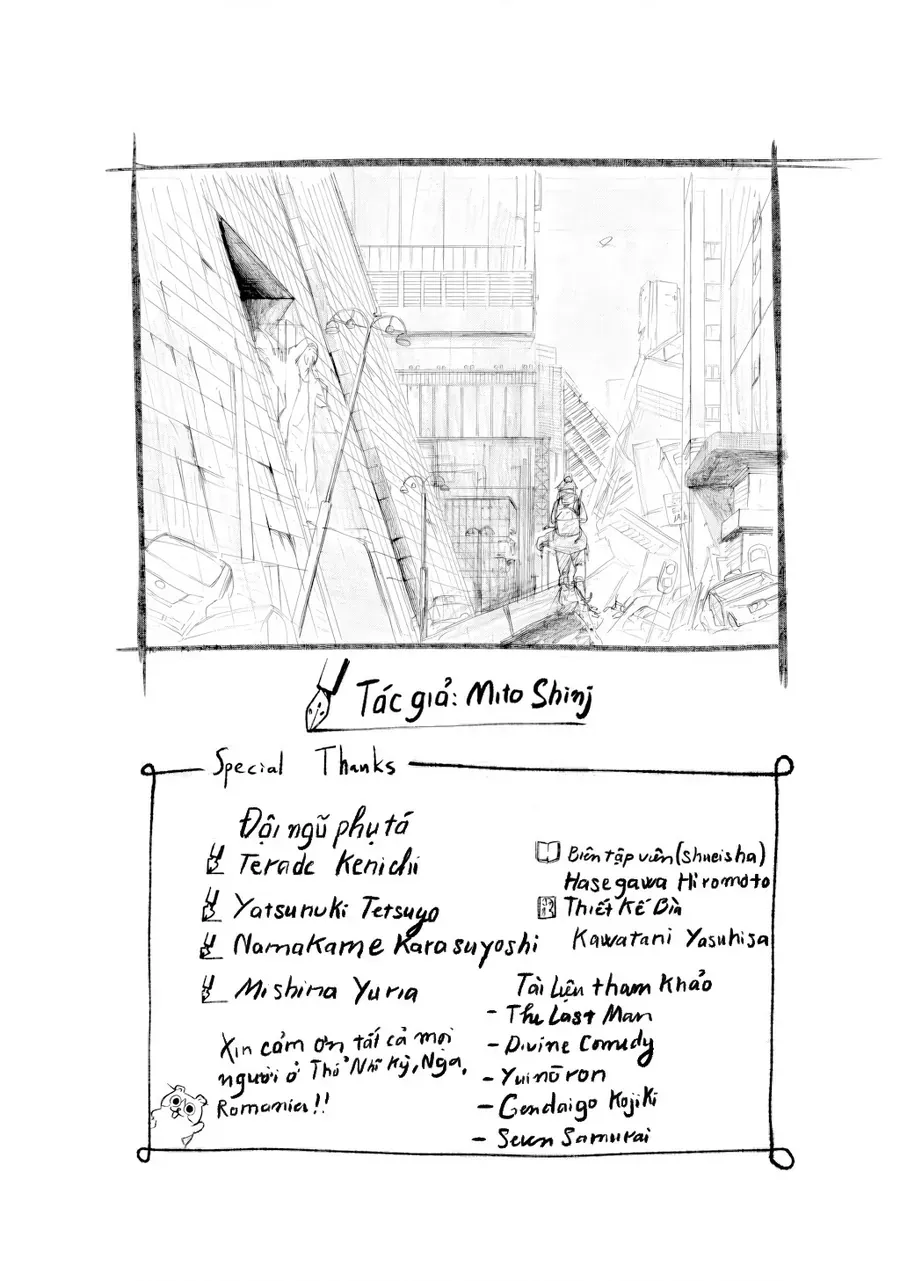 Tác giả: Mito Shinj
Special Thanks
Đội ngũ phụ tá
Terade Kenichi
Yatsunuki Tetsugo
Namakame Karasuyoshi
Mishina Yuria
Xin cảm ơn tất cả mọi
người ở Thổ Nhĩ Kỳ, Nga,
Romania!!
Biên tập viên (shueisha)
Hasegawa Hiromoto
Thiết Kế Bìa
Kawatani Yasuhisa
Tài liệu tham khảo
- The Last Man
- Divine Comedy
- Yuinōron
- Gendaigo Kojiki
- Seven Samurai